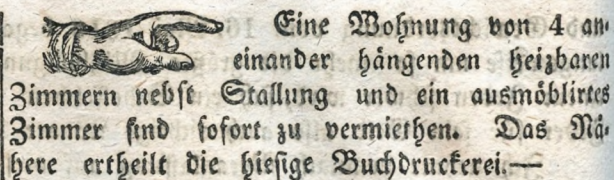 Eine Wohnung von 4 an-
einander hängenden heizbaren
Zimmern nebst Stallung und ein ausmöblirtes
Zimmer sind sofort zu vermiethen. Das Nä-
here ertheilt die hiesige Buchdruckerei.—